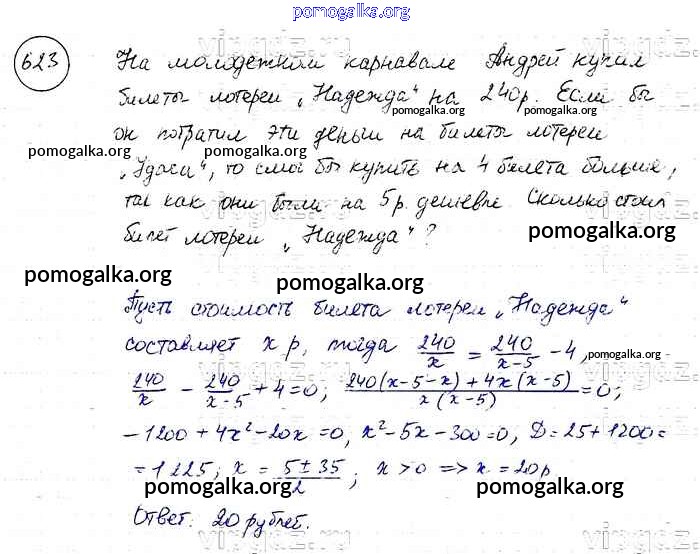 pomogalka.org
623
На молодежном карнавале Андрей купил
билеты лотереи „Надежда“ на 240р. Если бы
pomogalka.org pomogalka.org
он потратил эти деньги на билеты лотереи
pomogalka.org pomogalka.org
„Удача“, то смог бы купить на 4 билета больше,
так как они были на 5 р. дешевле. Сколько стоил
билет лотереи „Надежда“?
pomogalka.org
pomogalka.org pomogalka.org pomogalka.org
Пусть стоимость билета лотереи „Надежда“
составляет x р, тогда 240/x = 240/(x-5) - 4,
pomogalka.org
240/x - 240/(x-5) + 4 = 0; (240(x-5-x)+4x(x-5))/(x(x-5)) = 0;
-1200 + 4x² - 20x = 0, x² - 5x - 300 = 0, D = 25 + 1200 =
= 1225; x = (5 ± 35)/2; x > 0 => x = 20р
pomogalka.org pomogalka.org pomogalka.org
Ответ: 20 рублей.